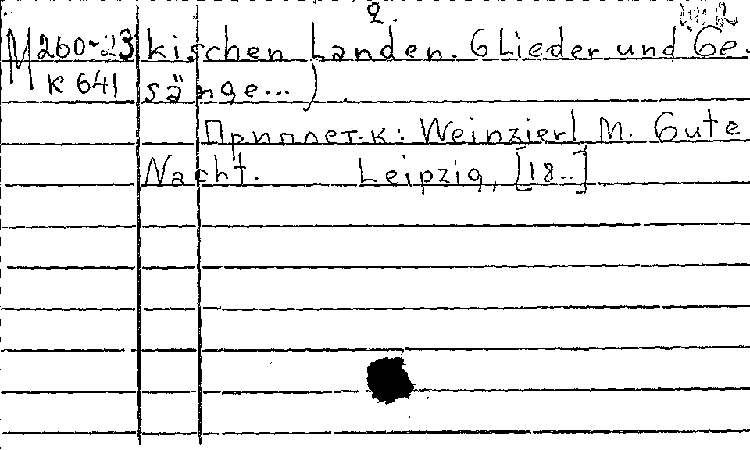 2.
М 260-23 kischen Landen. 6 Lieder und Ge-
К 641 sänge...)
Приплет.к: Weinzierl M. Gute
Nacht. Leipzig, [18..]